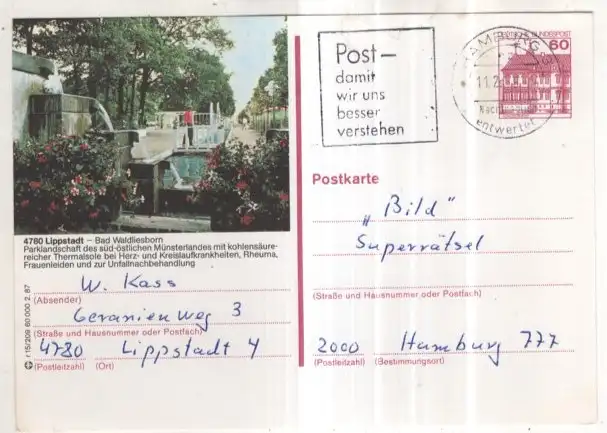 Post–
damit
wir uns
besser
verstehen
HAMBURG
11.2
entwertet
DEUTSCHE BUNDESPOST
60
4780 Lippstadt – Bad Waldliesborn
Parklandschaft des süd-östlichen Münsterlandes mit kohlensäure-
reicher Thermalsole bei Herz- und Kreislaufkrankheiten, Rheuma,
Frauenleiden und zur Unfallnachbehandlung
W. Kass
(Absender)
Geranienweg 3
(Straße und Hausnummer oder Postfach)
4780 Lippstadt 4
(Postleitzahl) (Ort)
r 15/209 60 000 2.87
Postkarte
„Bild"
Superrätsel
(Straße und Hausnummer oder Postfach)
2000 Hamburg 777
(Postleitzahl) (Bestimmungsort)